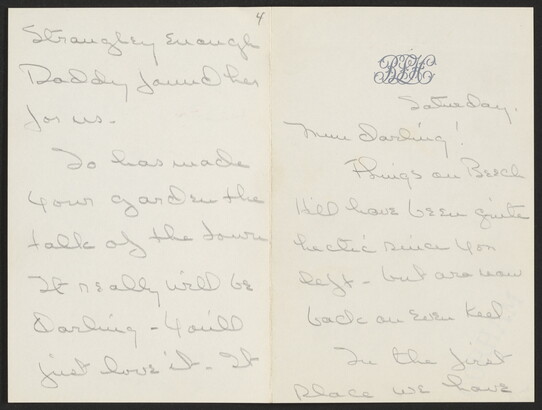 4
Strangley enough
Daddy found her
for us -
Jo has made
your garden the
talk of the town
It really will be
Darling - You'll
just love it - It
Saturday.
Mum darling!
Things on Beech
Hill have been quite
hectic since you
left - but are now
back on even keel
In the first
place we have